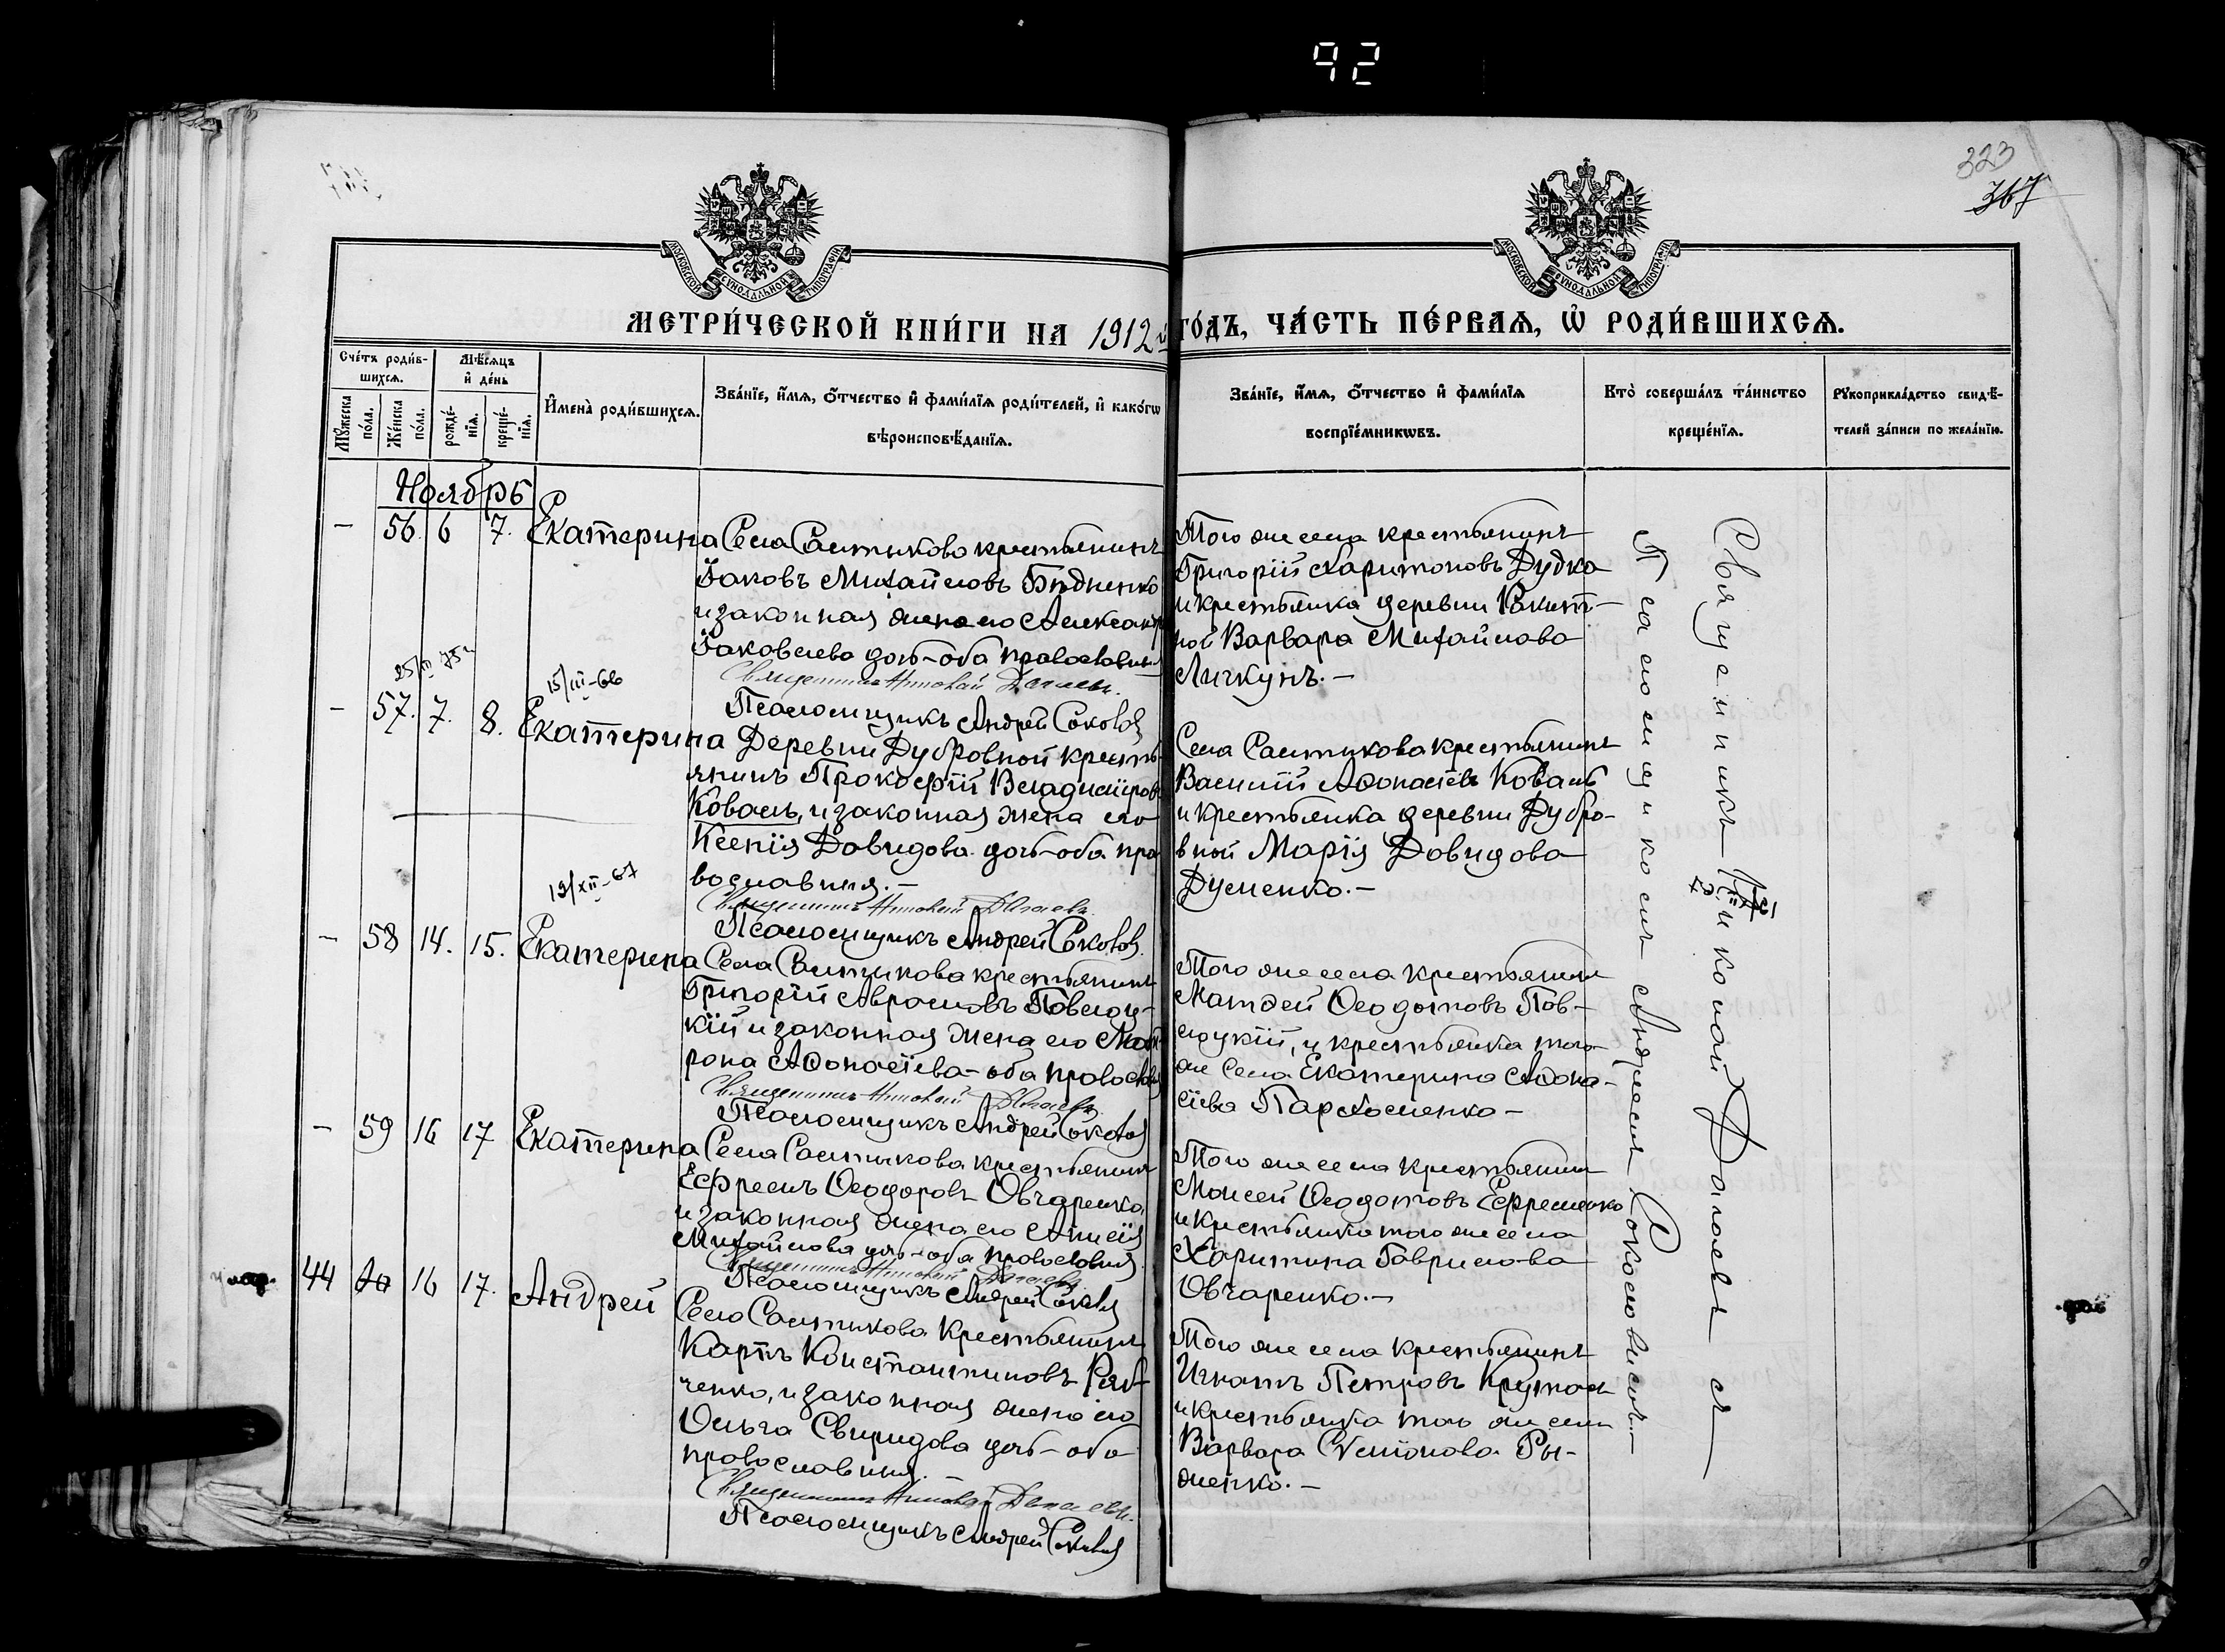 92
323
367
МОСКОВСКОЙ СУНОДАЛЬНОЙ ТИПОГРАФІИ
МОСКОВСКОЙ СУНОДАЛЬНОЙ ТИПОГРАФІИ
МЕТРИ́ЧЕСКОЙ КНИ́ГИ НА 1912й ГО́ДЪ, ЧА́СТЬ ПЕ́РВАЯ, Ѡ҆ РОДИ́ВШИХСЯ.
Сче́тъ роди́в-
шихся.
Мѣ́сяцъ
и҆ де́нь
Мꙋ́жеска
по́ла.
Же́нска
по́ла.
рожде́-
нїѧ.
креще́-
нїѧ.
И҆мена̀ роди́вшихсѧ.
Зва́нїе, и҆́мѧ, ѻ҆́тчество и҆ фами́лїѧ роди́телей, и҆ како́гѡ
вѣроисповѣ́данїѧ.
Зва́нїе, и҆́мѧ, ѻ҆́тчество и҆ фами́лїѧ
воспрїе́мникѡвъ.
Кто̀ соверша́лъ та́инство
креще́нїѧ.
Рꙋкоприкла́дство свидѣ́-
телей за́писи по жела́нїю.
Ноябрь
— 56. 6 7. Екатерина
Села Салтыкова крестьянинъ
Іаковъ Михайловъ Бѣдненко
и законная жена его Александра
Іаковлева дочь – оба православные
Священникъ Николай
Псаломщикъ Андрей Соколов
Того же села крестьянинъ
Григорій Харитоновъ Дудка
и крестьянка деревни Ракит-
ной Варвара Михайлова
Личкунъ. –
15/III-66
— 57. 7. 8. Екатерина
Деревни Дубровной кресть-
янинъ Прокофій Владиміровъ
Коваль, и законная жена его
Ксенія Давидова дочь – оба пра-
вославныя. –
Священникъ Николай
Псаломщикъ Андрей Соколов
Села Салтыкова крестьянинъ
Василій Аѳонасіевъ Коваль
и крестьянка деревни Дубро-
вной Марія Давидова
Думенко. –
19/XII-67
— 58 14. 15. Екатерина
Села Салтыкова крестьянинъ
Григорій Аврамовъ Повлоц-
кій и законная жена его Мат-
рона Аѳонасіева – оба православные
Священникъ Николай
Псаломщикъ Андрей Соколов
Того же села крестьянинъ
Матѳей Ѳеодотовъ Пов-
лоцкій, и крестьянка того
же села Екатерина Аѳона-
сіева Пархоменко –
— 59 16 17 Екатерина
Села Салтыкова крестьянинъ
Ефремъ Ѳеодоровъ Овчаренко
и законная жена его Анисія
Михайлова дочь – оба православныя
Священникъ Николай
Псаломщикъ Андрей Соколов
Того же села крестьянинъ
Моисей Ѳеодотовъ Ефременко
и крестьянка того же села
Харитина Гаврилова
Овчаренко. –
44 16 17. Андрей
Села Салтыкова крестьянинъ
Карпъ Константиновъ Ряб-
ченко, и законная жена его
Ольга Свиридова дочь – оба
православныя. –
Священникъ Николай
Псаломщикъ Андрей Соколов
Того же села крестьянинъ
Игнатъ Петровъ
и крестьянка того же села
Варвара Симіонова Ры-
женко. –
Священникъ Николай
Псаломщикомъ Андреемъ Соколовымъ. –